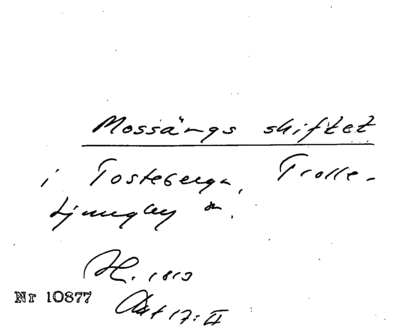 Mossängs skiftet
i Tosteberga, Trolle-
Ljungby sn.
H. 1813
Nr 10877
Akt 17:II